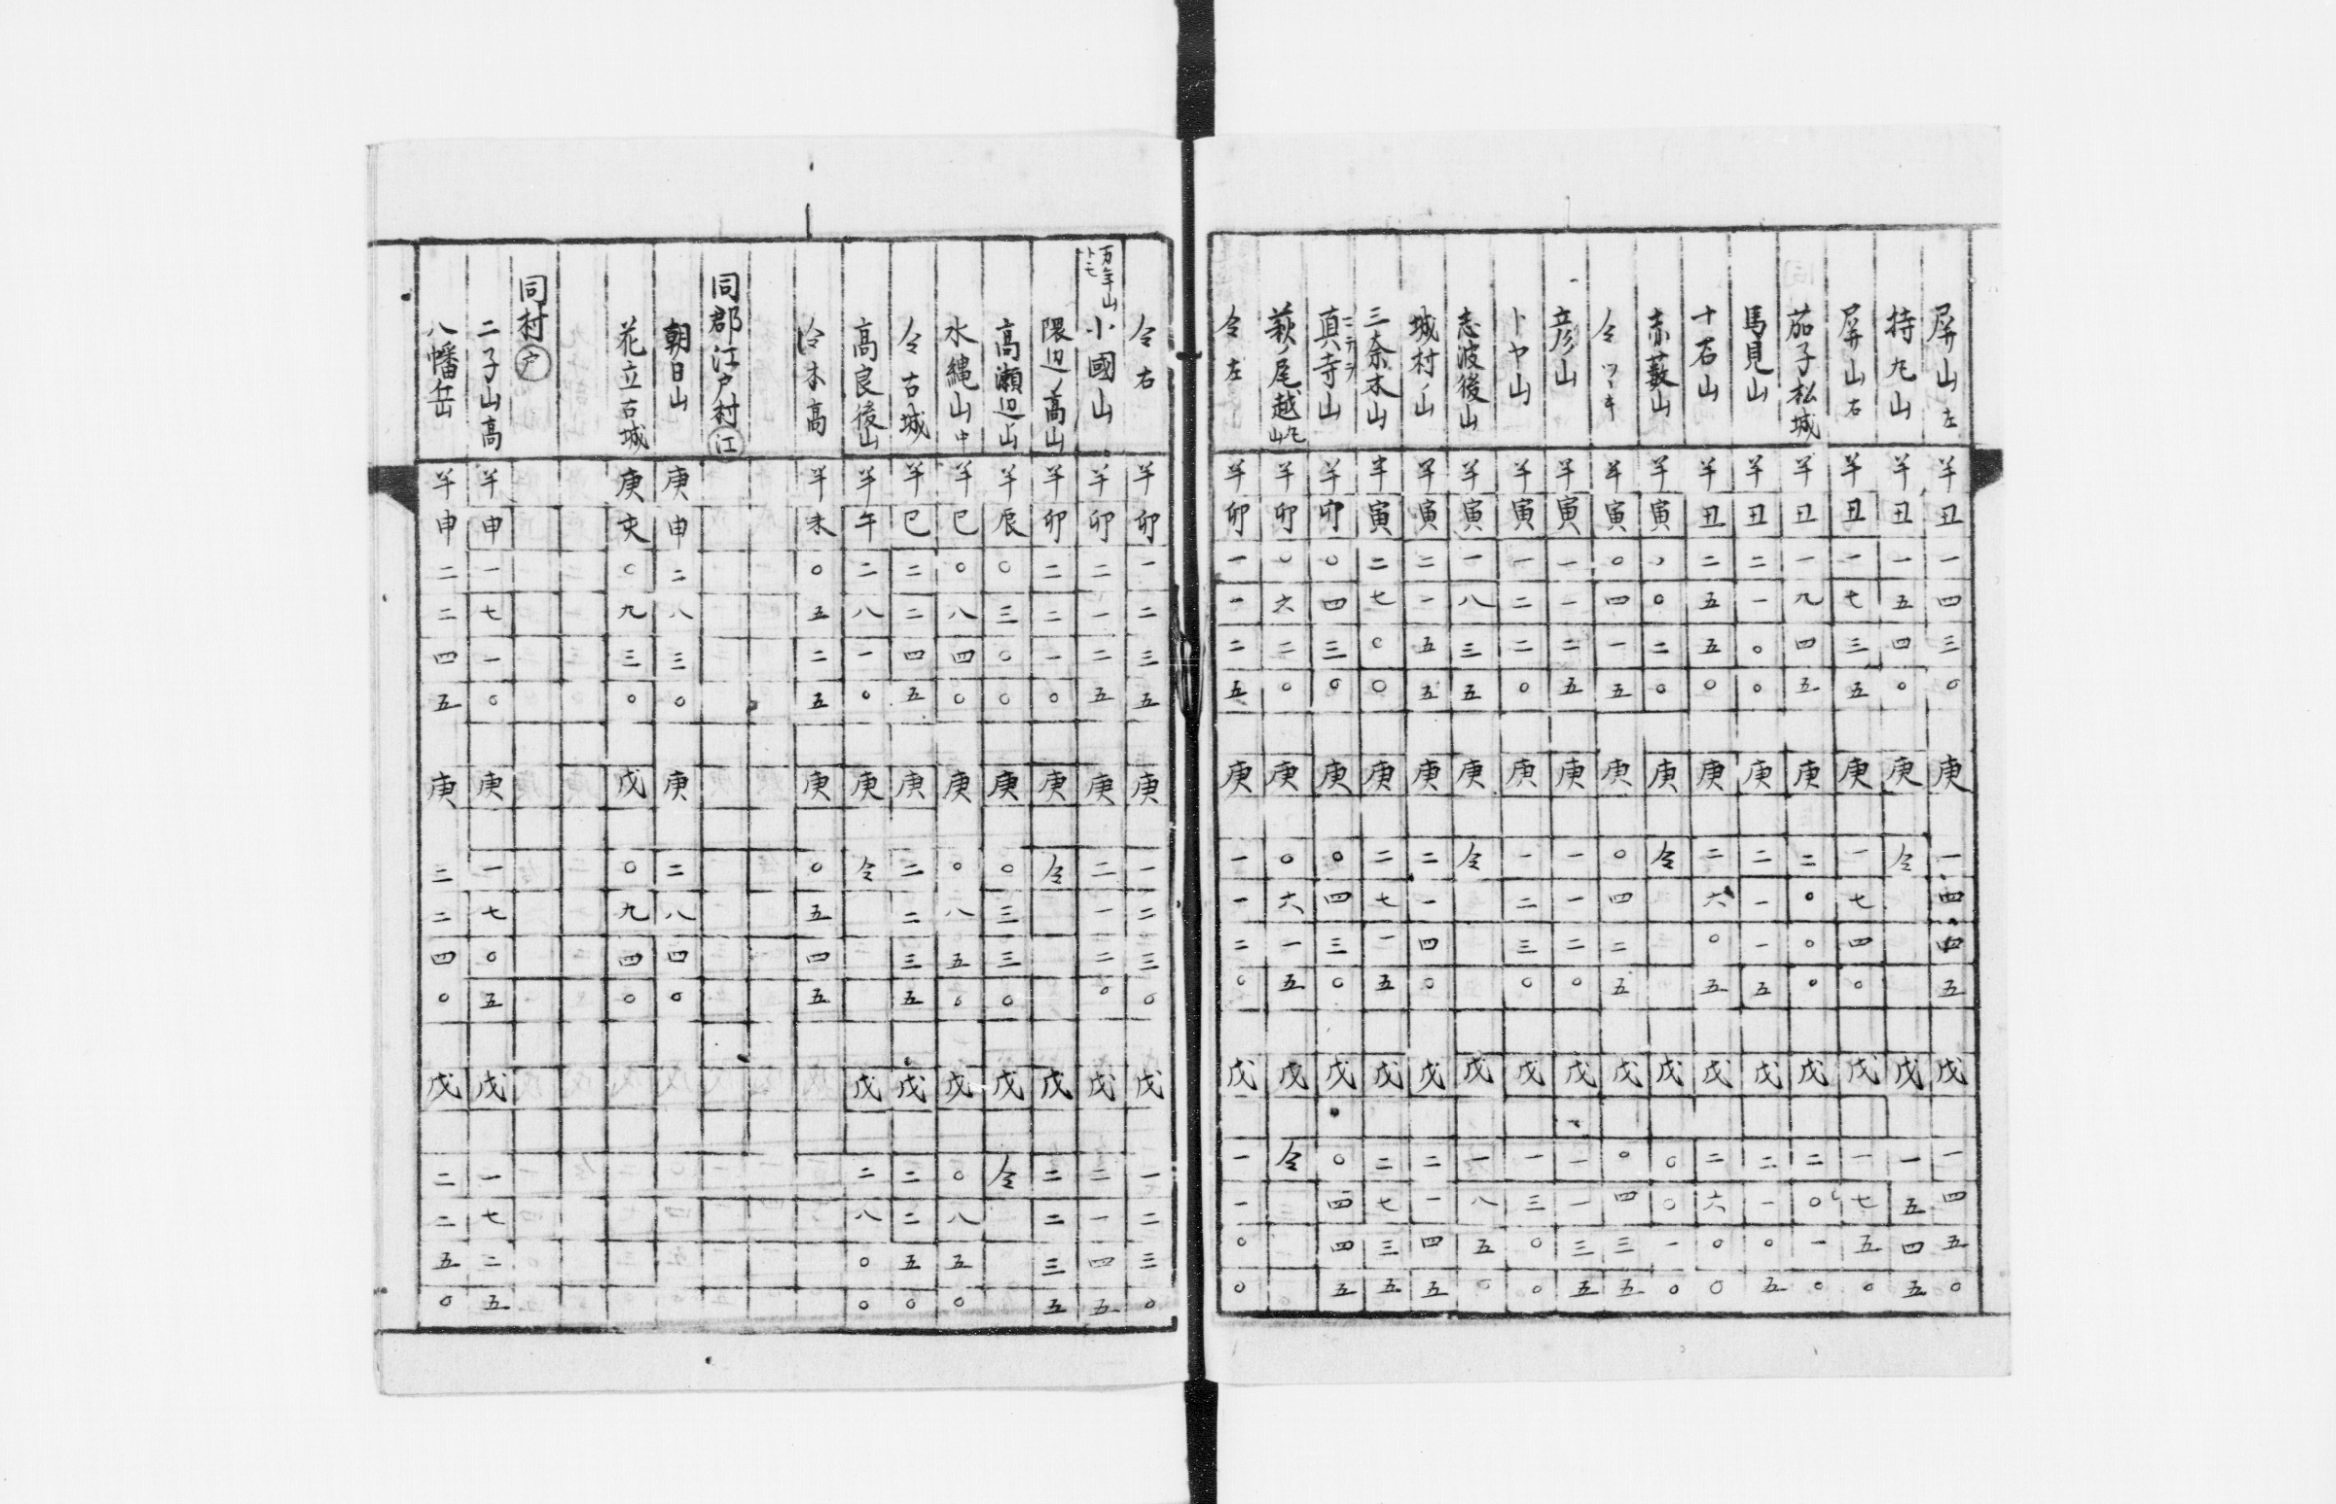 屏山左 羊丑一四三〇 庚一四四五 戊一四五〇
持丸山 羊丑一五四〇 庚仝 戊一五四五
屏山右 羊丑一七三五 庚一七四〇 戊一七五〇
茄子松城 羊丑一九四五 庚二〇〇〇 戊二〇一〇
馬見山 羊丑二一〇〇 庚二一一五 戊二一〇五
十石山 羊丑二五五〇 庚二六〇五 戊二六〇〇
赤藪山 羊寅〇〇二〇 庚仝 戊〇〇一〇
仝ツヽキ 羊寅〇四一五 庚〇四二五 戊〇四三五
彦山 羊寅一一二五 庚一一二〇 戊一一三五
トヤ山 羊寅一二二〇 庚一二三〇 戊一三〇〇
志波後山 羊寅一八三五 庚仝 戊一八五〇
城村ノ山 羊寅二一五五 庚二一四〇 戊二一四五
三奈木山 羊寅二七〇〇 庚二七一五 戊二七三五
真寺山 羊卯〇四三〇 庚〇四三〇 戊〇四四五
萩ノ尾越丸山 羊卯〇六二〇 庚〇六一五 戊仝
仝左 羊卯一一二五 庚一一二〇 戊一一〇〇
仝右 羊卯一二三五 庚一二三〇 戊一二三〇
万年山トモ 小國山 羊卯二一二五 庚二一二〇 戊二一四五
隈辺ノ高山 羊卯二二一〇 庚仝 戊二二三五
高瀬辺ノ山 羊辰〇三〇〇 庚〇三三〇 戊仝
水縄山中 羊巳〇八四〇 庚〇八五〇 戊〇八五〇
仝古城 羊巳二二四五 庚二二三五 戊二二五〇
高良後山 羊午二八一〇 庚仝 戊二八〇〇
冷水高 羊未〇五二五 庚〇五四五
同郡江戸村江
朝日山 庚申二八三〇 庚二八四〇
花立古城 庚亥〇九三〇 戊〇九四〇
同村戸
二子山高 羊申一七一〇 庚一七〇五 戊一七二五
八幡岳 羊申二二四五 庚二二四〇 戊二二五〇